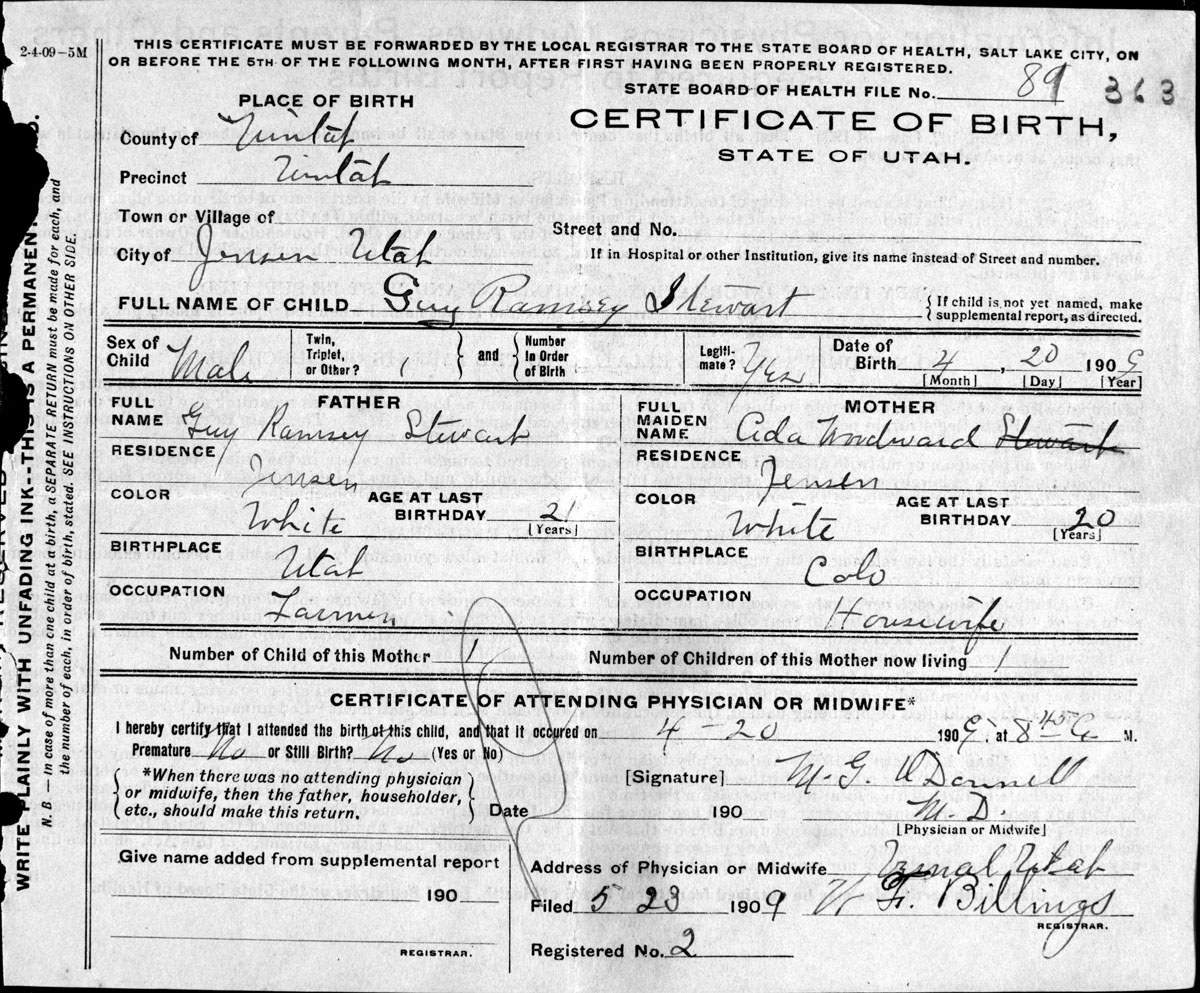 2-4-09-5M
THIS CERTIFICATE MUST BE FORWARDED BY THE LOCAL REGISTRAR TO THE STATE BOARD OF HEALTH, SALT LAKE CITY, ON
OR BEFORE THE 5TH OF THE FOLLOWING MONTH, AFTER FIRST HAVING BEEN PROPERLY REGISTERED.
STATE BOARD OF HEALTH FILE No. 89 363
PLACE OF BIRTH
CERTIFICATE OF BIRTH,
STATE OF UTAH.
County of Uintah
Precinct Uintah
Town or Village of
Street and No.
City of Jensen Utah
If in Hospital or other Institution, give its name instead of Street and number.
FULL NAME OF CHILD Guy Ramsey Stewart
{ If child is not yet named, make
supplemental report, as directed.
Sex of Child Male
Twin, Triplet, or Other? } and { Number in Order of Birth
Legiti-mate? Yes
Date of Birth 4, 20 1909
[Month] [Day] [Year]
FATHER
FULL NAME Guy Ramsey Stewart
RESIDENCE Jensen
COLOR White
AGE AT LAST BIRTHDAY 21 [Years]
BIRTHPLACE Utah
OCCUPATION Farmer
MOTHER
FULL MAIDEN NAME Woodward Stewart
RESIDENCE Jensen
COLOR White
AGE AT LAST BIRTHDAY 20 [Years]
BIRTHPLACE Colo
OCCUPATION Housewife
Number of Child of this Mother 1
Number of Children of this Mother now living 1
CERTIFICATE OF ATTENDING PHYSICIAN OR MIDWIFE*
I hereby certify that I attended the birth of this child, and that it occured on 4-20 1909, at 8 45 a M.
Premature No or Still Birth? No (Yes or No)
{ *When there was no attending physician
or midwife, then the father, householder,
etc., should make this return. }
[Signature] M. G. O'Donnell
Date 190 M. D.
[Physician or Midwife]
Give name added from supplemental report
190
REGISTRAR.
Address of Physician or Midwife Vernal Utah
Filed 5 23 1909 Billings
REGISTRAR.
Registered No. 2
WRITE PLAINLY WITH UNFADING INK--THIS IS A PERMANENT
N. B. — In case of more than one child at a birth, a SEPARATE RETURN must be made for each, and
the number of each, in order of birth, stated. SEE INSTRUCTIONS ON OTHER SIDE.